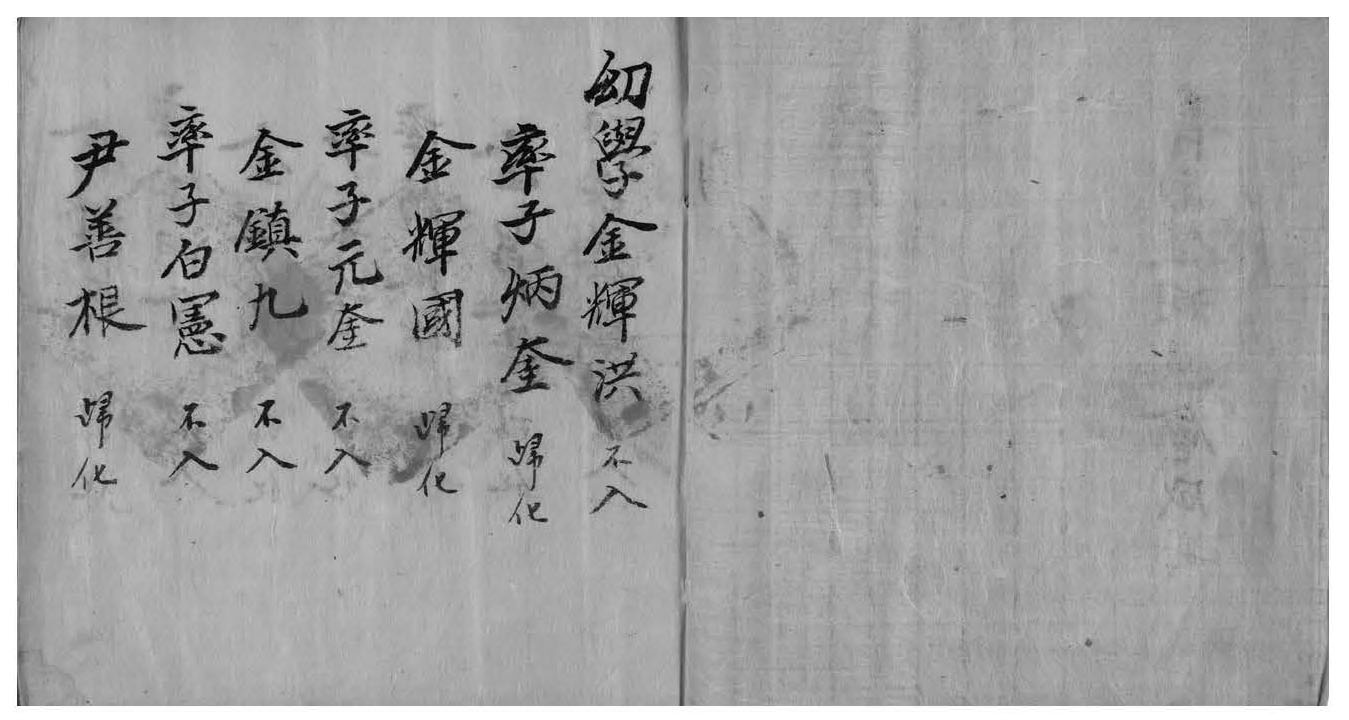 幼學金輝洪 不入
率子炳奎 歸化
金輝國 歸化
率子元奎 不入
金鎮九 不入
率子白憲 不入
尹善根 歸化